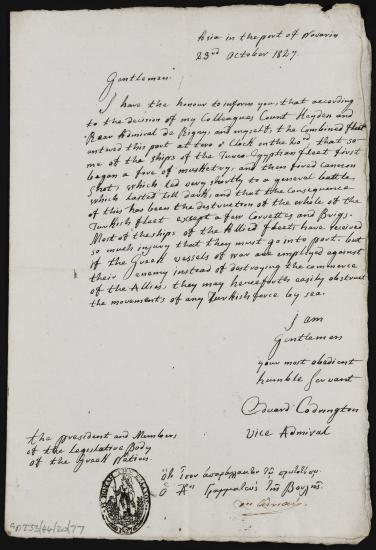 Asia in the port of Navarin
23rd October 1827.
Gentlemen.
I have the honour to inform you, that according
to the decision of my Colleagues Count Heyden and
Rear Admiral de Rigny, and myself, the Combined fleet
entered this port at two o'Clock on the 20th that so-
me of the ships of the Turco Egyptian fleet first
began a fire of musketry, and then fired cannon
shot, which led very shortly to a general battle
which lasted till dark, and that the Consequence
of this has been the destruction of the whole of the
Turkish fleet except a few Corvettes and Brigs.
Most of the ships of the Allied fleets have received
so much injury that they must go into port. but
if the Greek vessels of war are employed against
their enemy instead of destroying the commerce
of the Allies, they may henceforth easily obstruct
the movements of any Turkish force by sea.
I am
Gentlemen
your most obedient
humble Servant
Edward Codrington
Vice Admiral
the president and Members
of the Legislative Body
of the Greek Nation.
ὅτι ἴσον ἀπαράλλακτον τῷ πρωτοτύπῳ.
ὁ Αος Γραμματεὺς τῆς Βουλῆς.